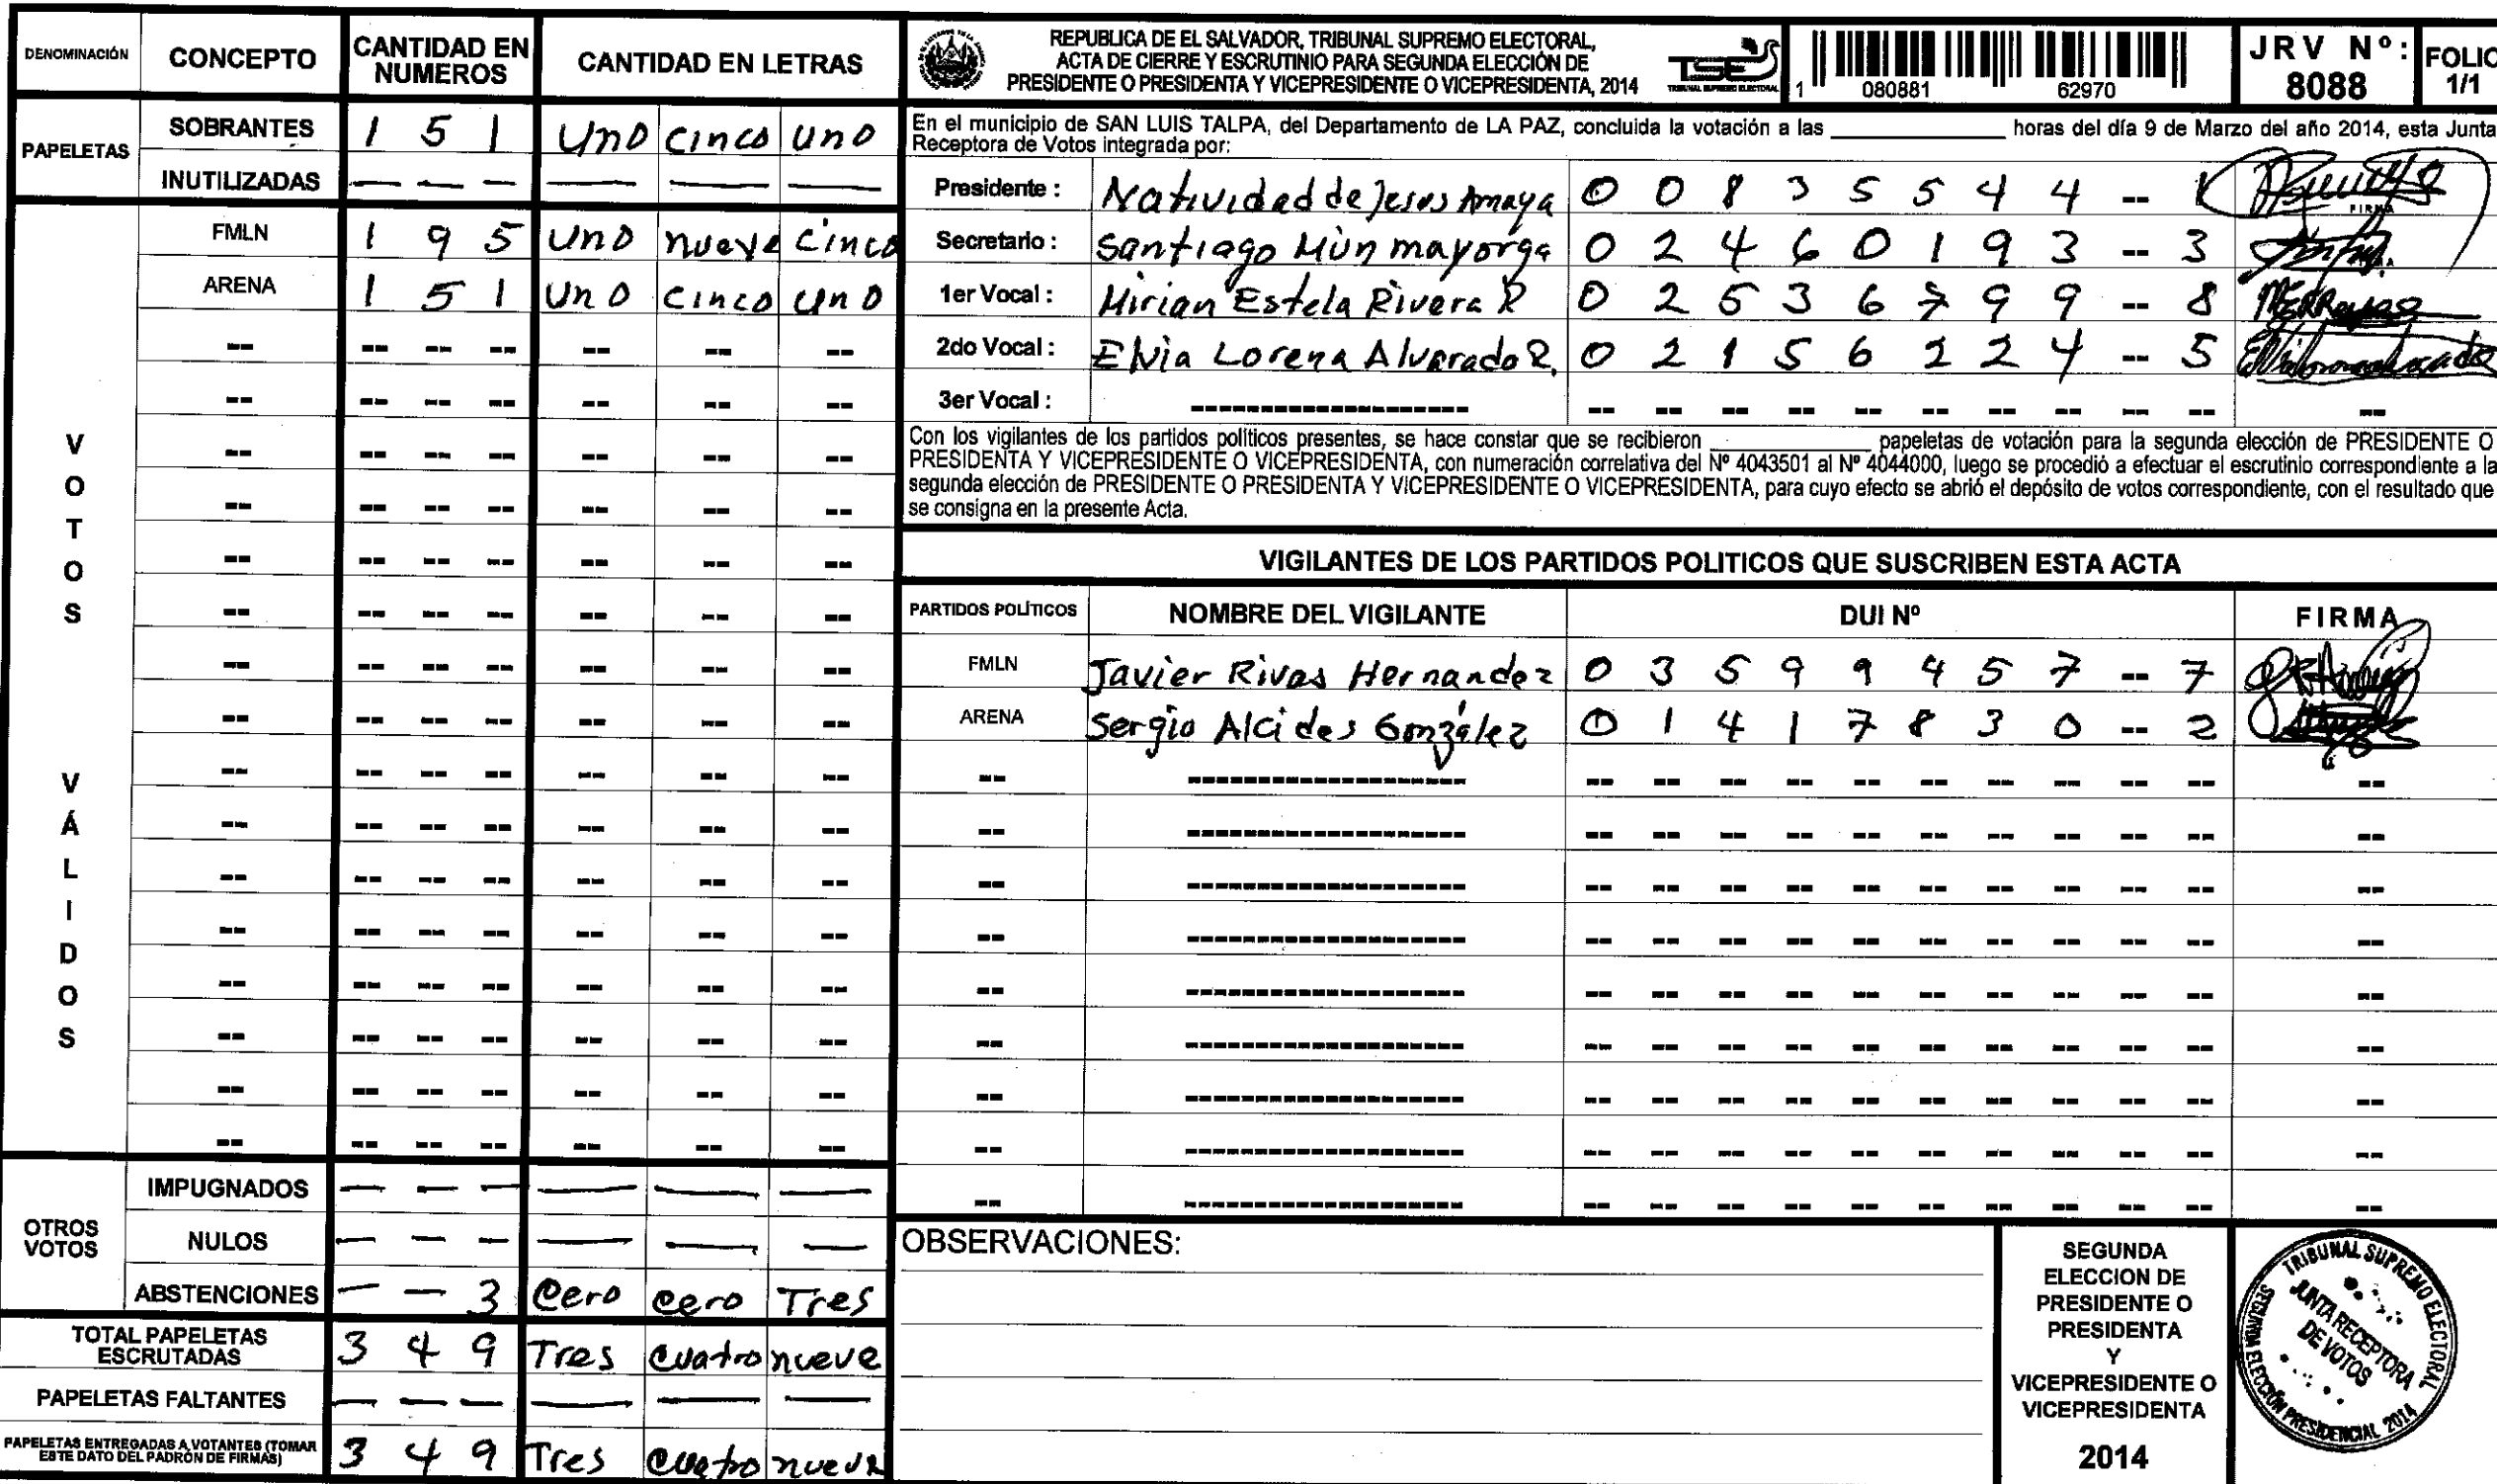 DENOMINACIÓN CONCEPTO CANTIDAD EN NUMEROS CANTIDAD EN LETRAS
PAPELETAS
SOBRANTES 1 5 1 Uno cinco uno
INUTILIZADAS — — — — — —
VOTOS VÁLIDOS
FMLN 1 9 5 uno nueve cinco
ARENA 1 5 1 uno cinco uno
OTROS VOTOS
IMPUGNADOS — — — — — —
NULOS — — — — — —
ABSTENCIONES — — 3 cero cero Tres
TOTAL PAPELETAS ESCRUTADAS 3 4 9 Tres cuatro nueve
PAPELETAS FALTANTES — — — — — —
PAPELETAS ENTREGADAS A VOTANTES (TOMAR ESTE DATO DEL PADRÓN DE FIRMAS) 3 4 9 Tres cuatro nueve
REPUBLICA DE EL SALVADOR, TRIBUNAL SUPREMO ELECTORAL,
ACTA DE CIERRE Y ESCRUTINIO PARA SEGUNDA ELECCIÓN DE
PRESIDENTE O PRESIDENTA Y VICEPRESIDENTE O VICEPRESIDENTA, 2014
TSE
TRIBUNAL SUPREMO ELECTORAL
1 080881 62970
JRV Nº: 8088
FOLIO 1/1
En el municipio de SAN LUIS TALPA, del Departamento de LA PAZ, concluida la votación a las ____ horas del día 9 de Marzo del año 2014, esta Junta
Receptora de Votos integrada por:
Presidente : Natividad de Jesus Amaya 0 0 8 3 5 5 4 4 -- 1
FIRMA
Secretario : Santiago Mun mayorga 0 2 4 6 0 1 9 3 -- 3
1er Vocal : Mirian Estela Rivera R 0 2 5 3 6 7 9 9 -- 8
2do Vocal : Elvia Lorena Alvarado R. 0 2 1 5 6 2 2 4 -- 5
3er Vocal :
Con los vigilantes de los partidos políticos presentes, se hace constar que se recibieron ____ papeletas de votación para la segunda elección de PRESIDENTE O
PRESIDENTA Y VICEPRESIDENTE O VICEPRESIDENTA, con numeración correlativa del Nº 4043501 al Nº 4044000, luego se procedió a efectuar el escrutinio correspondiente a la
segunda elección de PRESIDENTE O PRESIDENTA Y VICEPRESIDENTE O VICEPRESIDENTA, para cuyo efecto se abrió el depósito de votos correspondiente, con el resultado que
se consigna en la presente Acta.
VIGILANTES DE LOS PARTIDOS POLITICOS QUE SUSCRIBEN ESTA ACTA
PARTIDOS POLÍTICOS NOMBRE DEL VIGILANTE DUI Nº FIRMA
FMLN Javier Rivas Hernandez 0 3 5 9 9 4 5 7 -- 7
ARENA Sergio Alcides González 0 1 4 1 7 8 3 0 -- 2
OBSERVACIONES:
SEGUNDA
ELECCION DE
PRESIDENTE O
PRESIDENTA
Y
VICEPRESIDENTE O
VICEPRESIDENTA
2014
TRIBUNAL SUPREMO ELECTORAL
JUNTA RECEPTORA
DE VOTOS
SEGUNDA ELECCIÓN PRESIDENCIAL 2014